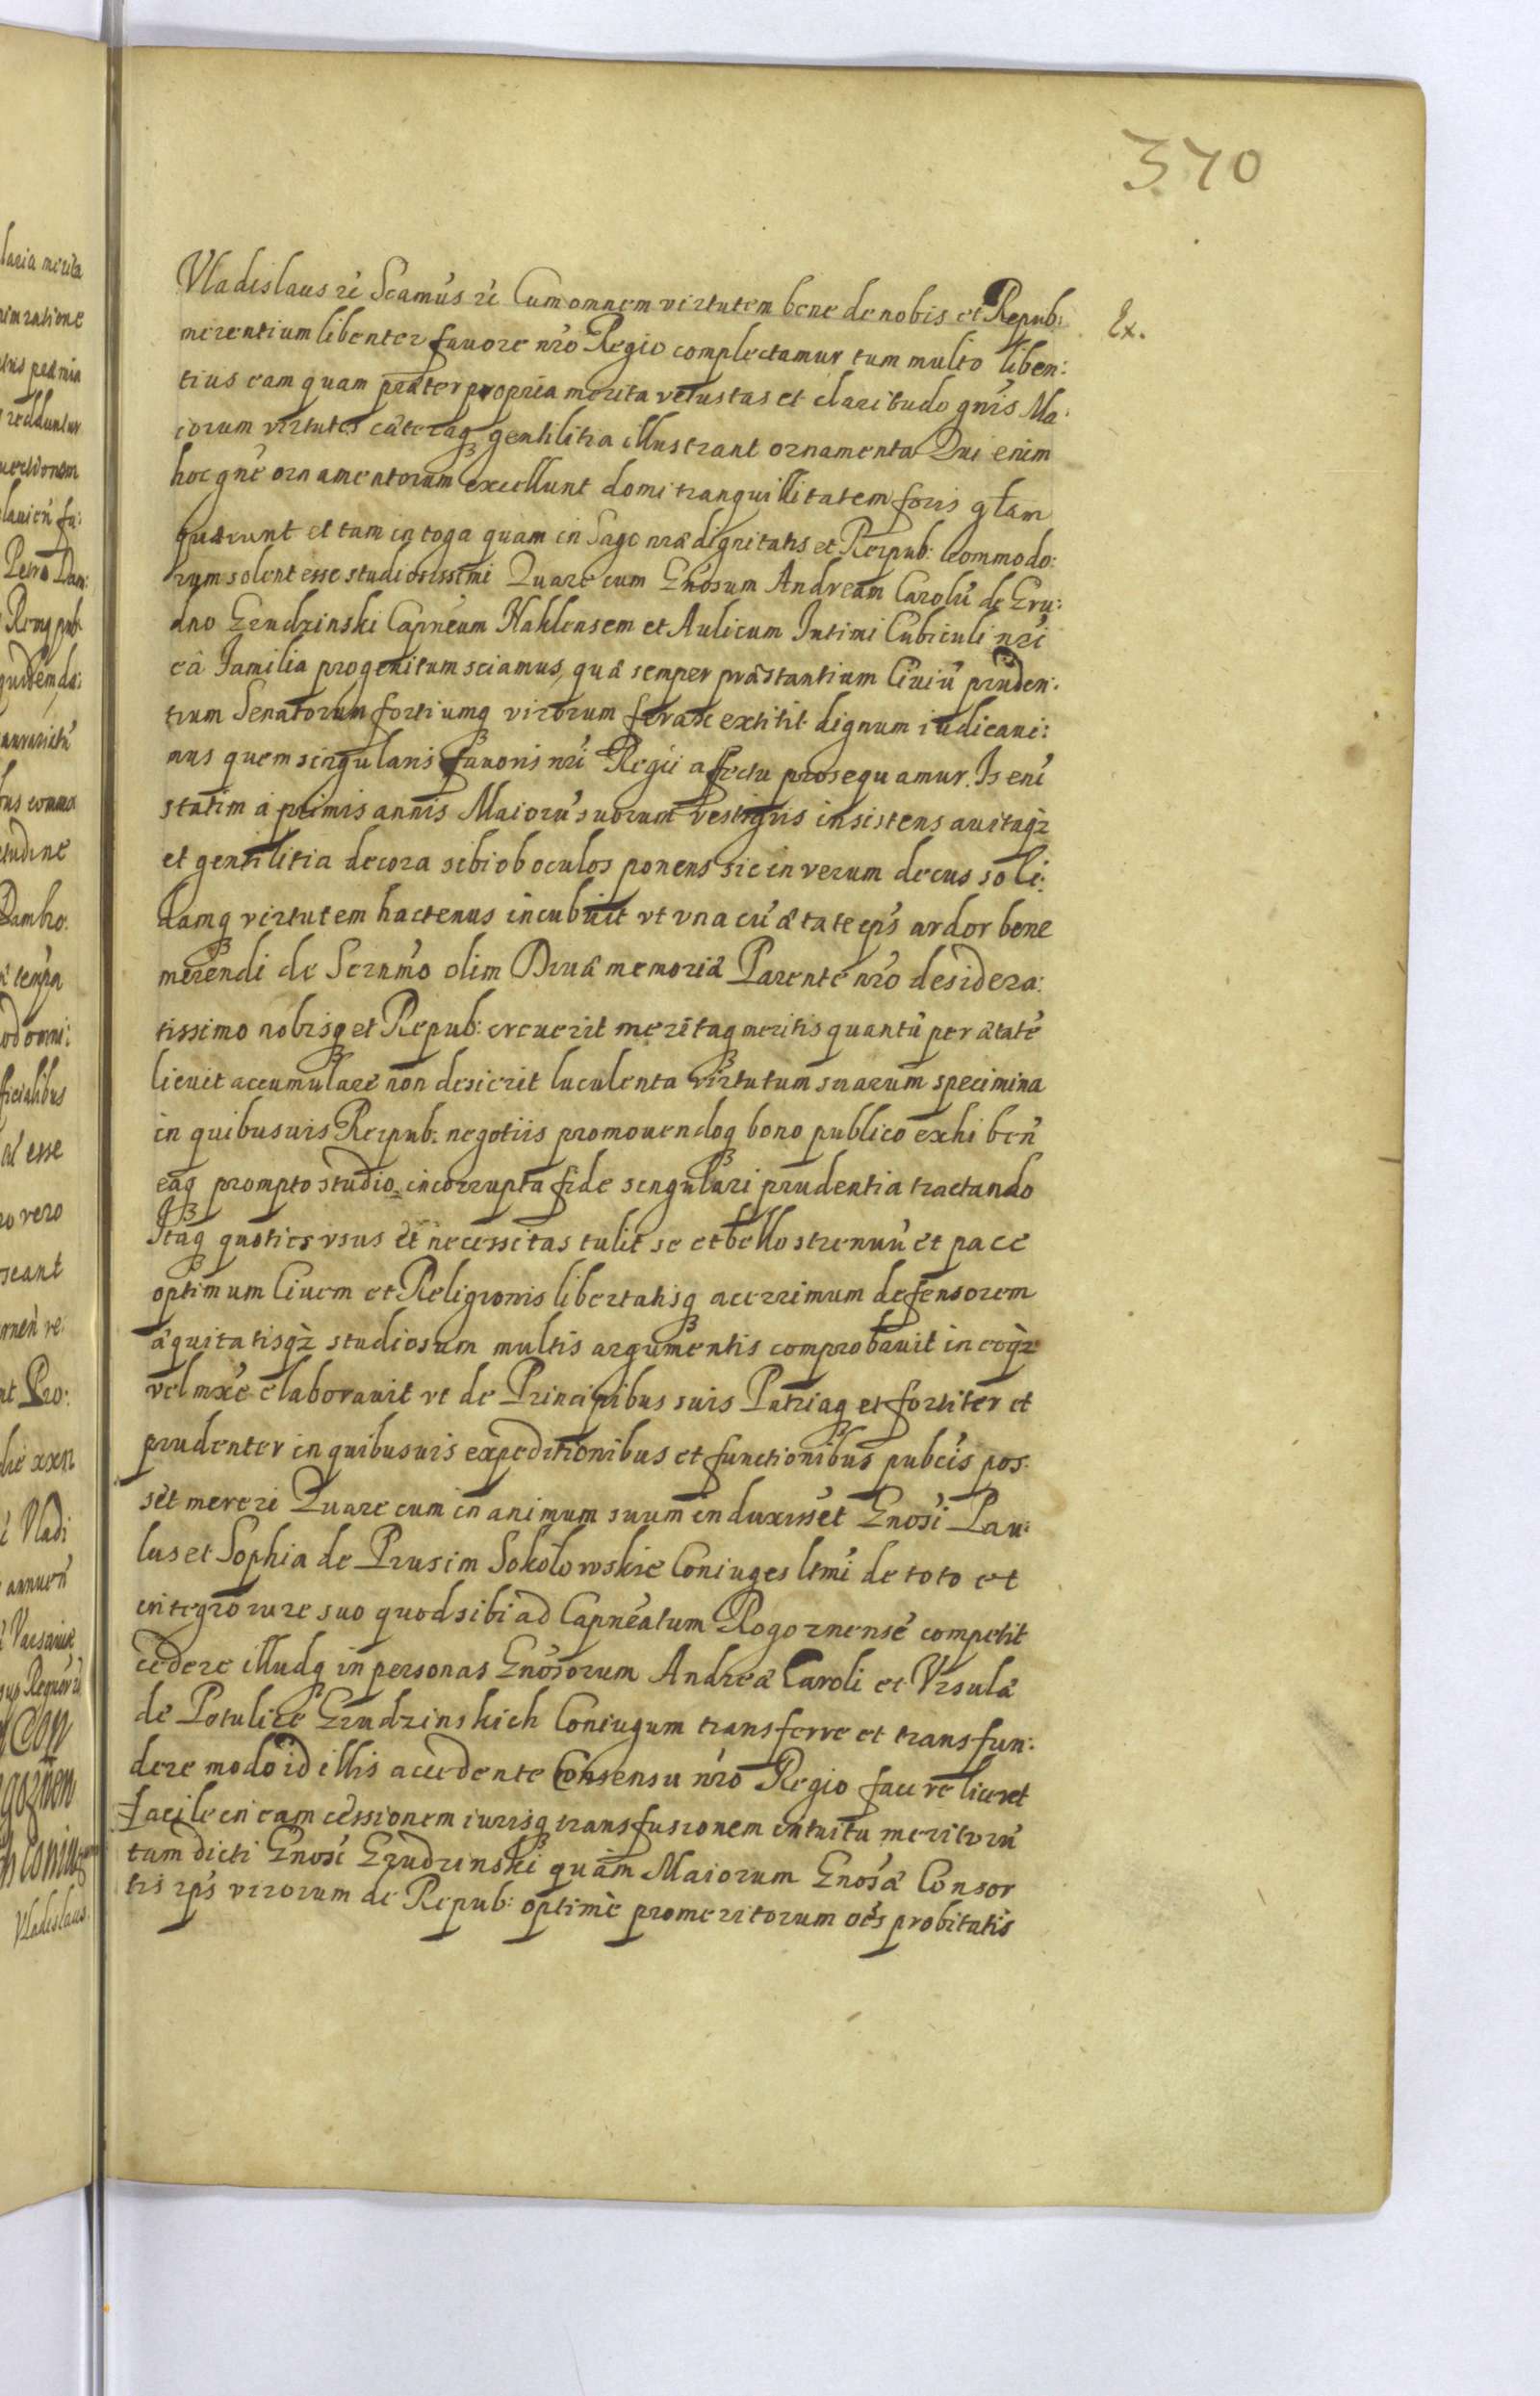 370
Vladislaus rè Scamús rè Cum omnem virtutem bene de nobis et Repub:
Ex.
merentium libenter fauore nrõ Regio complectamur tum multo liben:
tius eam quam præter propria merita vetustas et claritudo gnis Ma:
iorum virtutes cæteraq gentilitia illustrant ornamenta Qui enim
hoc gnè ornamentorum excellunt domi tranquillitatem foris głam
quærunt et tam in toga quam in Sago nræ dignitatis et Reipub: commodo:
rum solent esse studiosissimi Quare cum Gnosum Andream Carolú de Gru:
dno Grudzinski Capneum Naklensem et Aulicum Intimi Cubiculi nri
eâ Familia progenitum sciamus, quæ semper præstantium Ciuiú pruden:
tium Senatorum fortiumq virorum ferax extitit dignum iudicaui:
mus quem singularis fauoris nri Regii affectu prosequamur. Is eni
statim a primis annis Maiorú suorum vestigiis insistens auitaqz
et gentilitia decora sibi ob oculos ponens sic in verum decus soli:
damq virtutem hactenus incubuit vt vna cú ætate eps ardor bene
merendi de Sernmo olim Diuæ memoriæ Parente nrõ desidera:
tissimo nobisq et Repub: creuerit meritaq meritis quantú per ætaté
licuit accumulare non desierit luculenta virtutum suarum specimina
in quibusuis Reipub: negotiis promouendoq bono publico exhiben
eaq prompto studio, incorrupta fide singulari prudentia tractando
Itaq quoties vsus et necessitas tulit se et bello strenuú et pace
optimum Ciuem et Religionis libertatisq acerrimum defensorem
æquitatisqz studiosum multis argumentis comprobauit in eoqz
vel mxè elaborauit vt de Principibus suis Patriaq et fortiter et
prudenter in quibusuis expeditionibus et functionibus pubcis pos:
set mereri Quare cum in animum suum induxisset Gnosi Pau:
lus et Sophia de Prusim Sokołowskie Coniuges ltmi de toto et
integro iure suo quod sibi ad Capneatum Rogoznensé competit
cedere illudq in personas Gnosorum Andreæ Caroli et Vrsulæ
de Potulice Grudzinskich Coniugum transferre et transfun:
dere modo id illis accedente Consensu nrõ Regio facere liceret
facile in eam cessionem iurisq transfusionem intuitu meritorú
tum dicti Gnosi Grudzinski quàm Maiorum Gnosæ Consor
tis ips virorum de Repub: optimè promeritorum oés probitatis